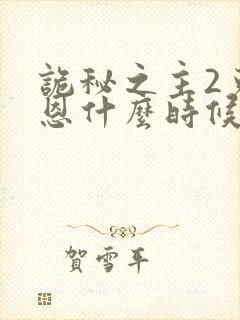 詭秘之主2
恩什麼時候
賀雪平